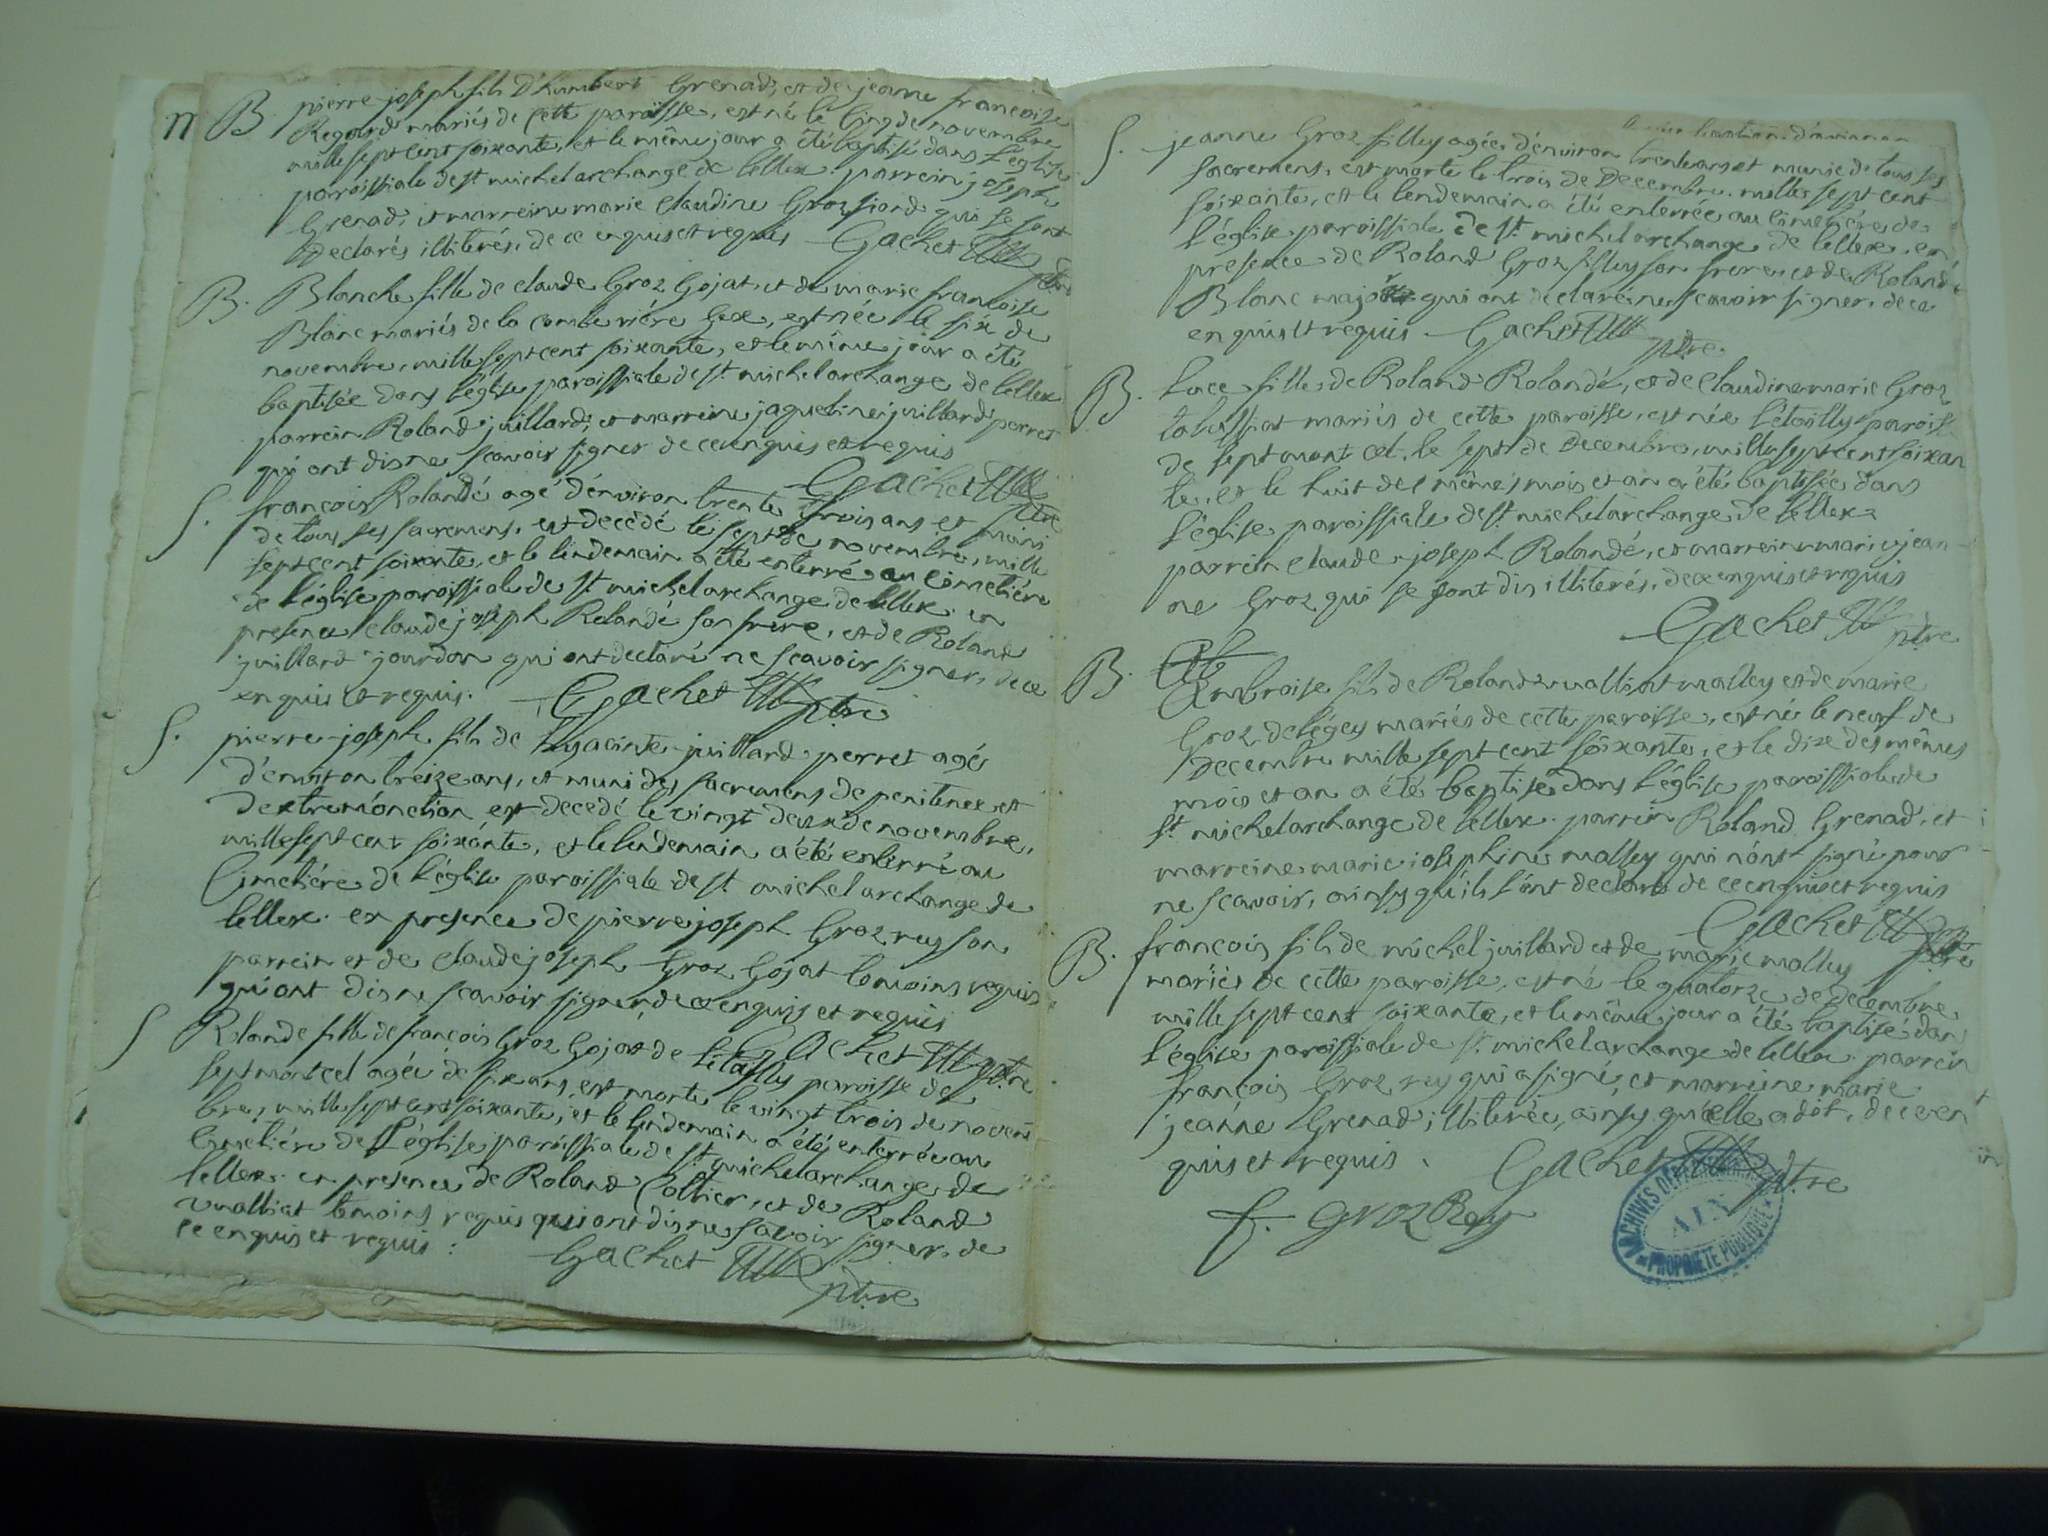 B. pierre joseph fils D'humbert Grenad, et de jeanne françoise
Regard mariés de cette paroisse, est né le Cinq de novembre
mille sept cent soixante, et le même jour a été baptisé dans l'église
paroissiale de st michel archange de lellex. parrein joseph
Grenad, et marreine marie Claudine Groz fiord qui se sont
Declarés illiterés. de ce enquis et requis Gachet
ptre
B. Blanche fille de claude Groz Gojat, et de marie françoise
Blanc mariés de la combe Gex, est née le six de
novembre, mille sept cent soixante, et le même jour a été
baptisée dans l'église paroissiale de st michel archange de lellex
parrein Roland juillard, et marreine jaqueline juillard perret
qui ont dis ne scavoir signer de ce enquis et requis
Gachet ptre
S. françois Rolandé agé d'environ trente trois ans et muni
de tous ses sacremens, est decedé le sept de novembre, mille
sept cent soixante, et le lendemain a été enterré au Cimetiére
de l'église paroissiale de st michel archange de lellex. en
presence claude joseph Rolandé son frere, et de Roland
juillard jourdan qui ont declaré ne scavoir signer, de ce
enquis et requis. Gachet ptre
S. pierre joseph fils de hyacinte juillard perret agés
d'environ treize ans, et muni des sacremens de penitence et
d'extremónction est decedé le vingt deux de novembre,
mille sept cent soixánte, et le lendemain a été enterré au
Cimetiére de l'église paroissiale de st michel archange de
lellex. en presence de pierre joseph Groz rey son
parrein et de claude joseph Groz Gojat temoins requis
qui ont dis ne scavoir signer, de ce enquis et requis
Gachet ptre
S Rolande fille de françois Groz Gojat de paroisse de
septmontcel agée de six ans, est morte le vingt trois de novem
bre, mille sept cent soixante, et le lendemain a été enterrée au
Cimetiére de l'église paroissiale de st michel archange de
lellex. en presence de Roland Coltier, et de Roland
vualliet temoins requis qui ont dis ne scavoir signer, de
ce enquis et requis :
Gachet ptre
S. jeanne Groz filley agée d'environ trente ans et munie de tous ses
sacremens, est morte le trois de Decembre, mille sept cent
soixante, et le lendemain a été enterrée au cimetiére de
l'église paroissiale de st michel archange de lellex. en
presence de Roland Groz filley son frere, et de Roland
Blanc qui ont declaré ne scavoir signer, de ce
enquis et requis. Gachet
ptre.
B. Luce fille de Roland Rolandé, et de Claudine marie Groz
mariés de cette paroisse, est née paroisse
de septmont cel. le sept de Decembre, mille sept cent soixan
te, et le huit des mêmes mois et an a été baptisée dans
l'église paroissiale de st michel archange de lellex
parrein claude joseph Rolandé, et marreine marie jean
ne Groz qui se sont dis illiterés. de ce enquis et requis
Gachet ptre
B. Ambroise fils de Roland vualliet malley et de marie
Groz mariés de cette paroisse, est né le neuf de
Decembre mille sept cent soixante, et le dix des mêmes
mois et an a été baptisé dans l'église paroissiale de
st. michel archange de lellex. parrein Roland Grenad, et
marreine marie josephine malley qui n'ont signé pour
ne scavoir, ainsy qu'ils l'ont declaré de ce enquis et requis
Gachet ptre
B. françois fils de michel juillard et de marie malley
mariés de cette paroisse, est né le quatorze de Decembre
mille sept cent soixante, et le même jour a été baptisé dans
l'église paroissiale de st michel archange de lellex. parrein
françois Groz rey qui a signé, et marreine marie
jeánne Grenad, illiterée, ainsy qu'elle a dit. de ce en
quis et requis. Gachet ptre
f. groz Rey
ARCHIVES DEPARTEMENTALES
AIN
PROPRIETE PUBLIQUE